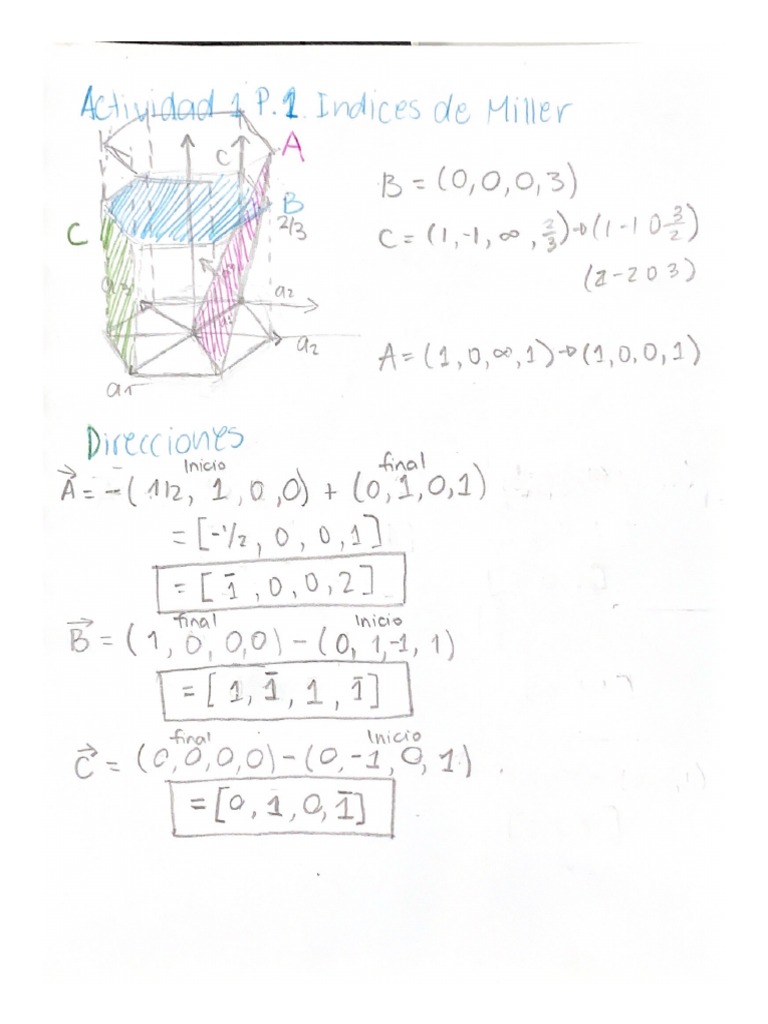 Actividad 1 P.1. Indices de Miller
A
C
B
2/3
C
a3
a2
a2
a1
B = (0,0,0,3)
C = (1,-1,∞,2/3)→(1-1 0 3/2)
(2-2 0 3)
A = (1,0,∞,1)→(1,0,0,1)
Direcciones
Inicio final
A⃗ = -(1/2, 1, 0, 0) + (0,1,0,1)
= [-1/2, 0, 0, 1]
= [1̄, 0, 0, 2]
final Inicio
B⃗ = (1, 0, 0,0) - (0, 1,-1, 1)
= [1, 1̄, 1, 1̄]
final Inicio
C⃗ = (0,0,0,0) - (0,-1,0,1)
= [0, 1, 0, 1̄]